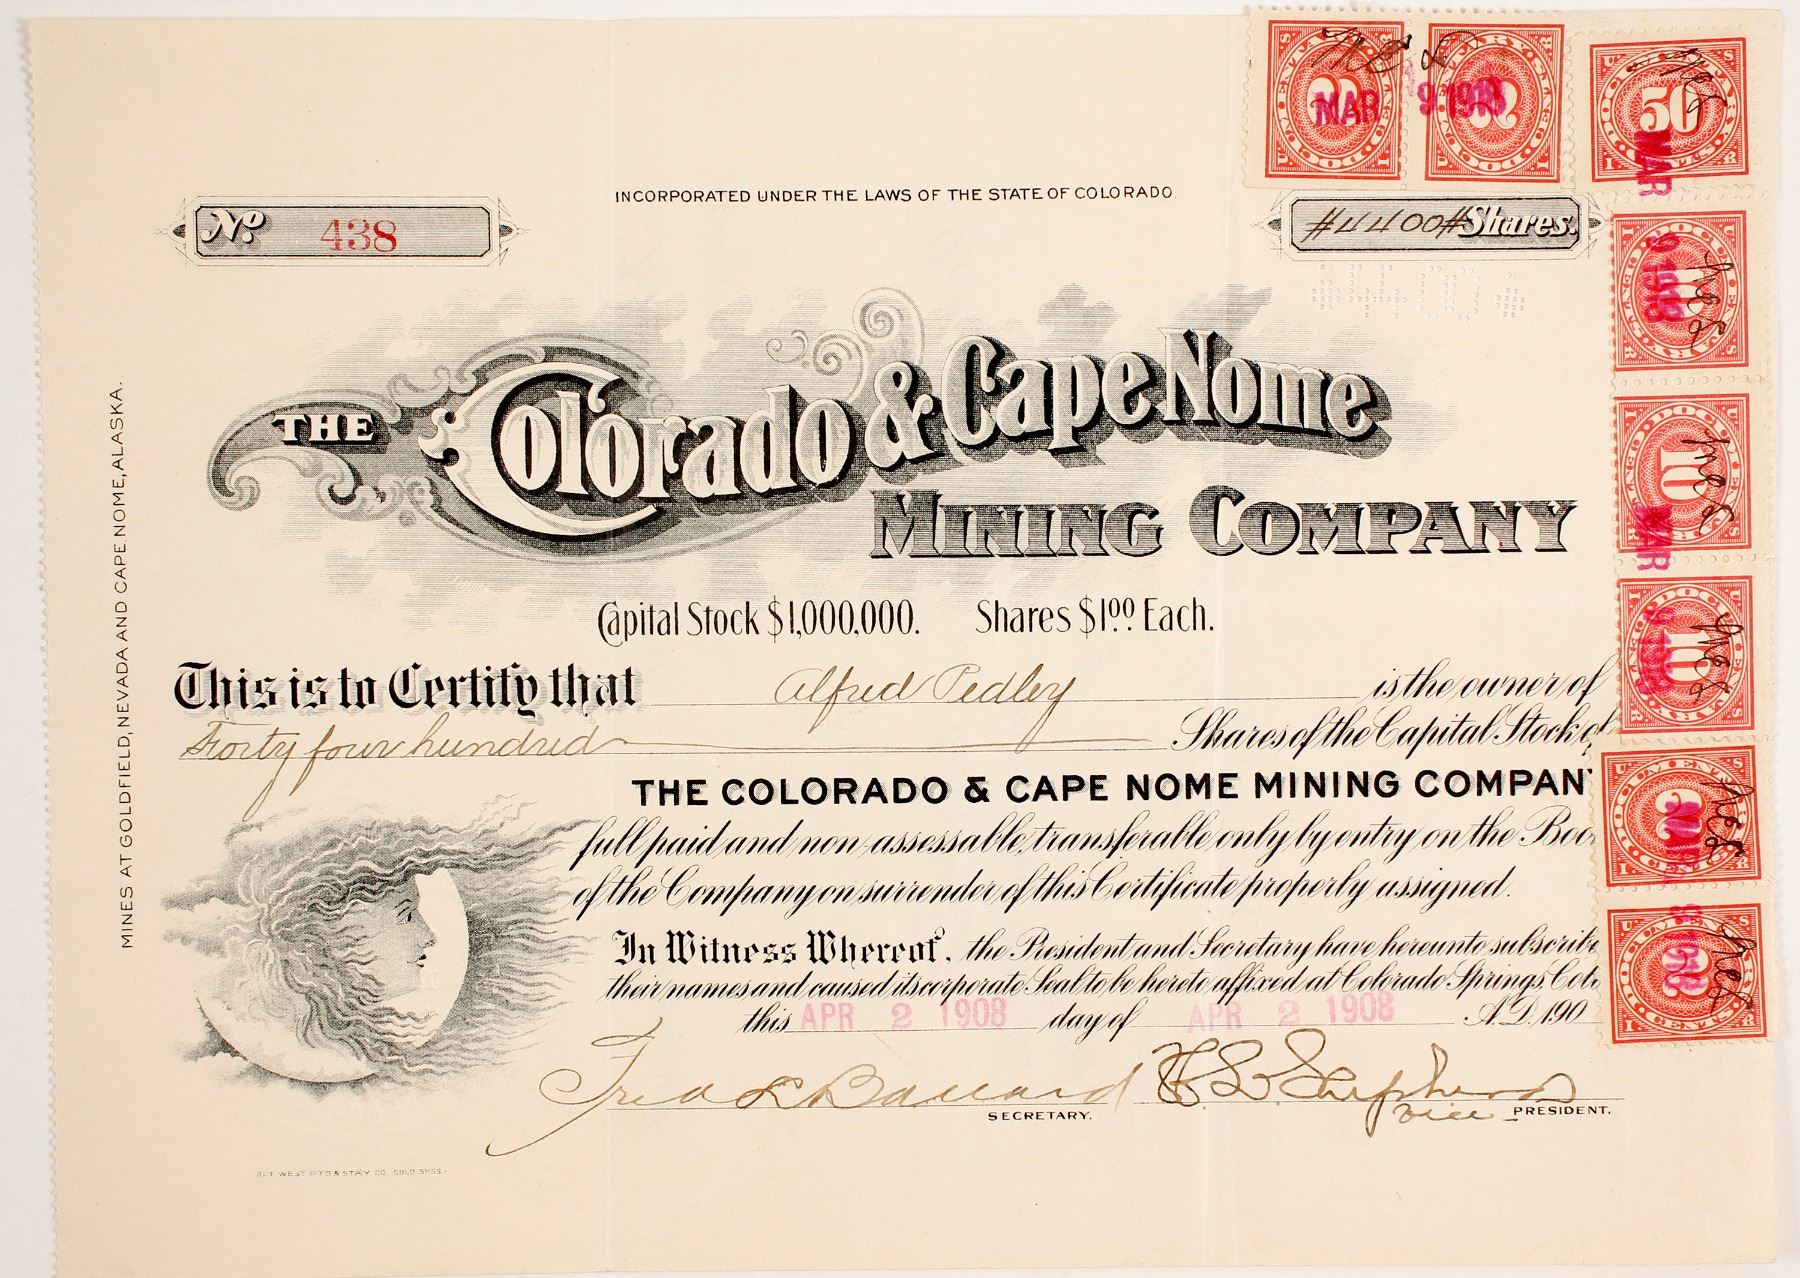 INCORPORATED UNDER THE LAWS OF THE STATE OF COLORADO.
No. 438
#4400# Shares.
THE Colorado & Cape Nome
MINING COMPANY
Capital Stock $1,000,000. Shares $1.00 Each.
This is to Certify that Alfred Pedley is the owner of
Forty four hundred Shares of the Capital Stock of
THE COLORADO & CAPE NOME MINING COMPAN
full paid and non-assessable, transferable only by entry on the Boo
of the Company on surrender of this Certificate properly assigned.
In Witness Whereof, the President and Secretary have hereunto subscribe
their names and caused its corporate Seal to be hereto affixed at Colorado Springs, Colo
this APR 2 1908 day of APR 2 1908 A.D. 190
Fred L Ballard SECRETARY.
Shepherd Vice PRESIDENT.
OUT WEST PTG & STA'Y CO. COLO. SPGS.
MINES AT GOLDFIELD, NEVADA AND CAPE NOME, ALASKA.
MAR 9 19
U.S. DOCUMENTARY
50
CENTS
MAR
10
10
MAR
10
2
CENTS
2
CENTS